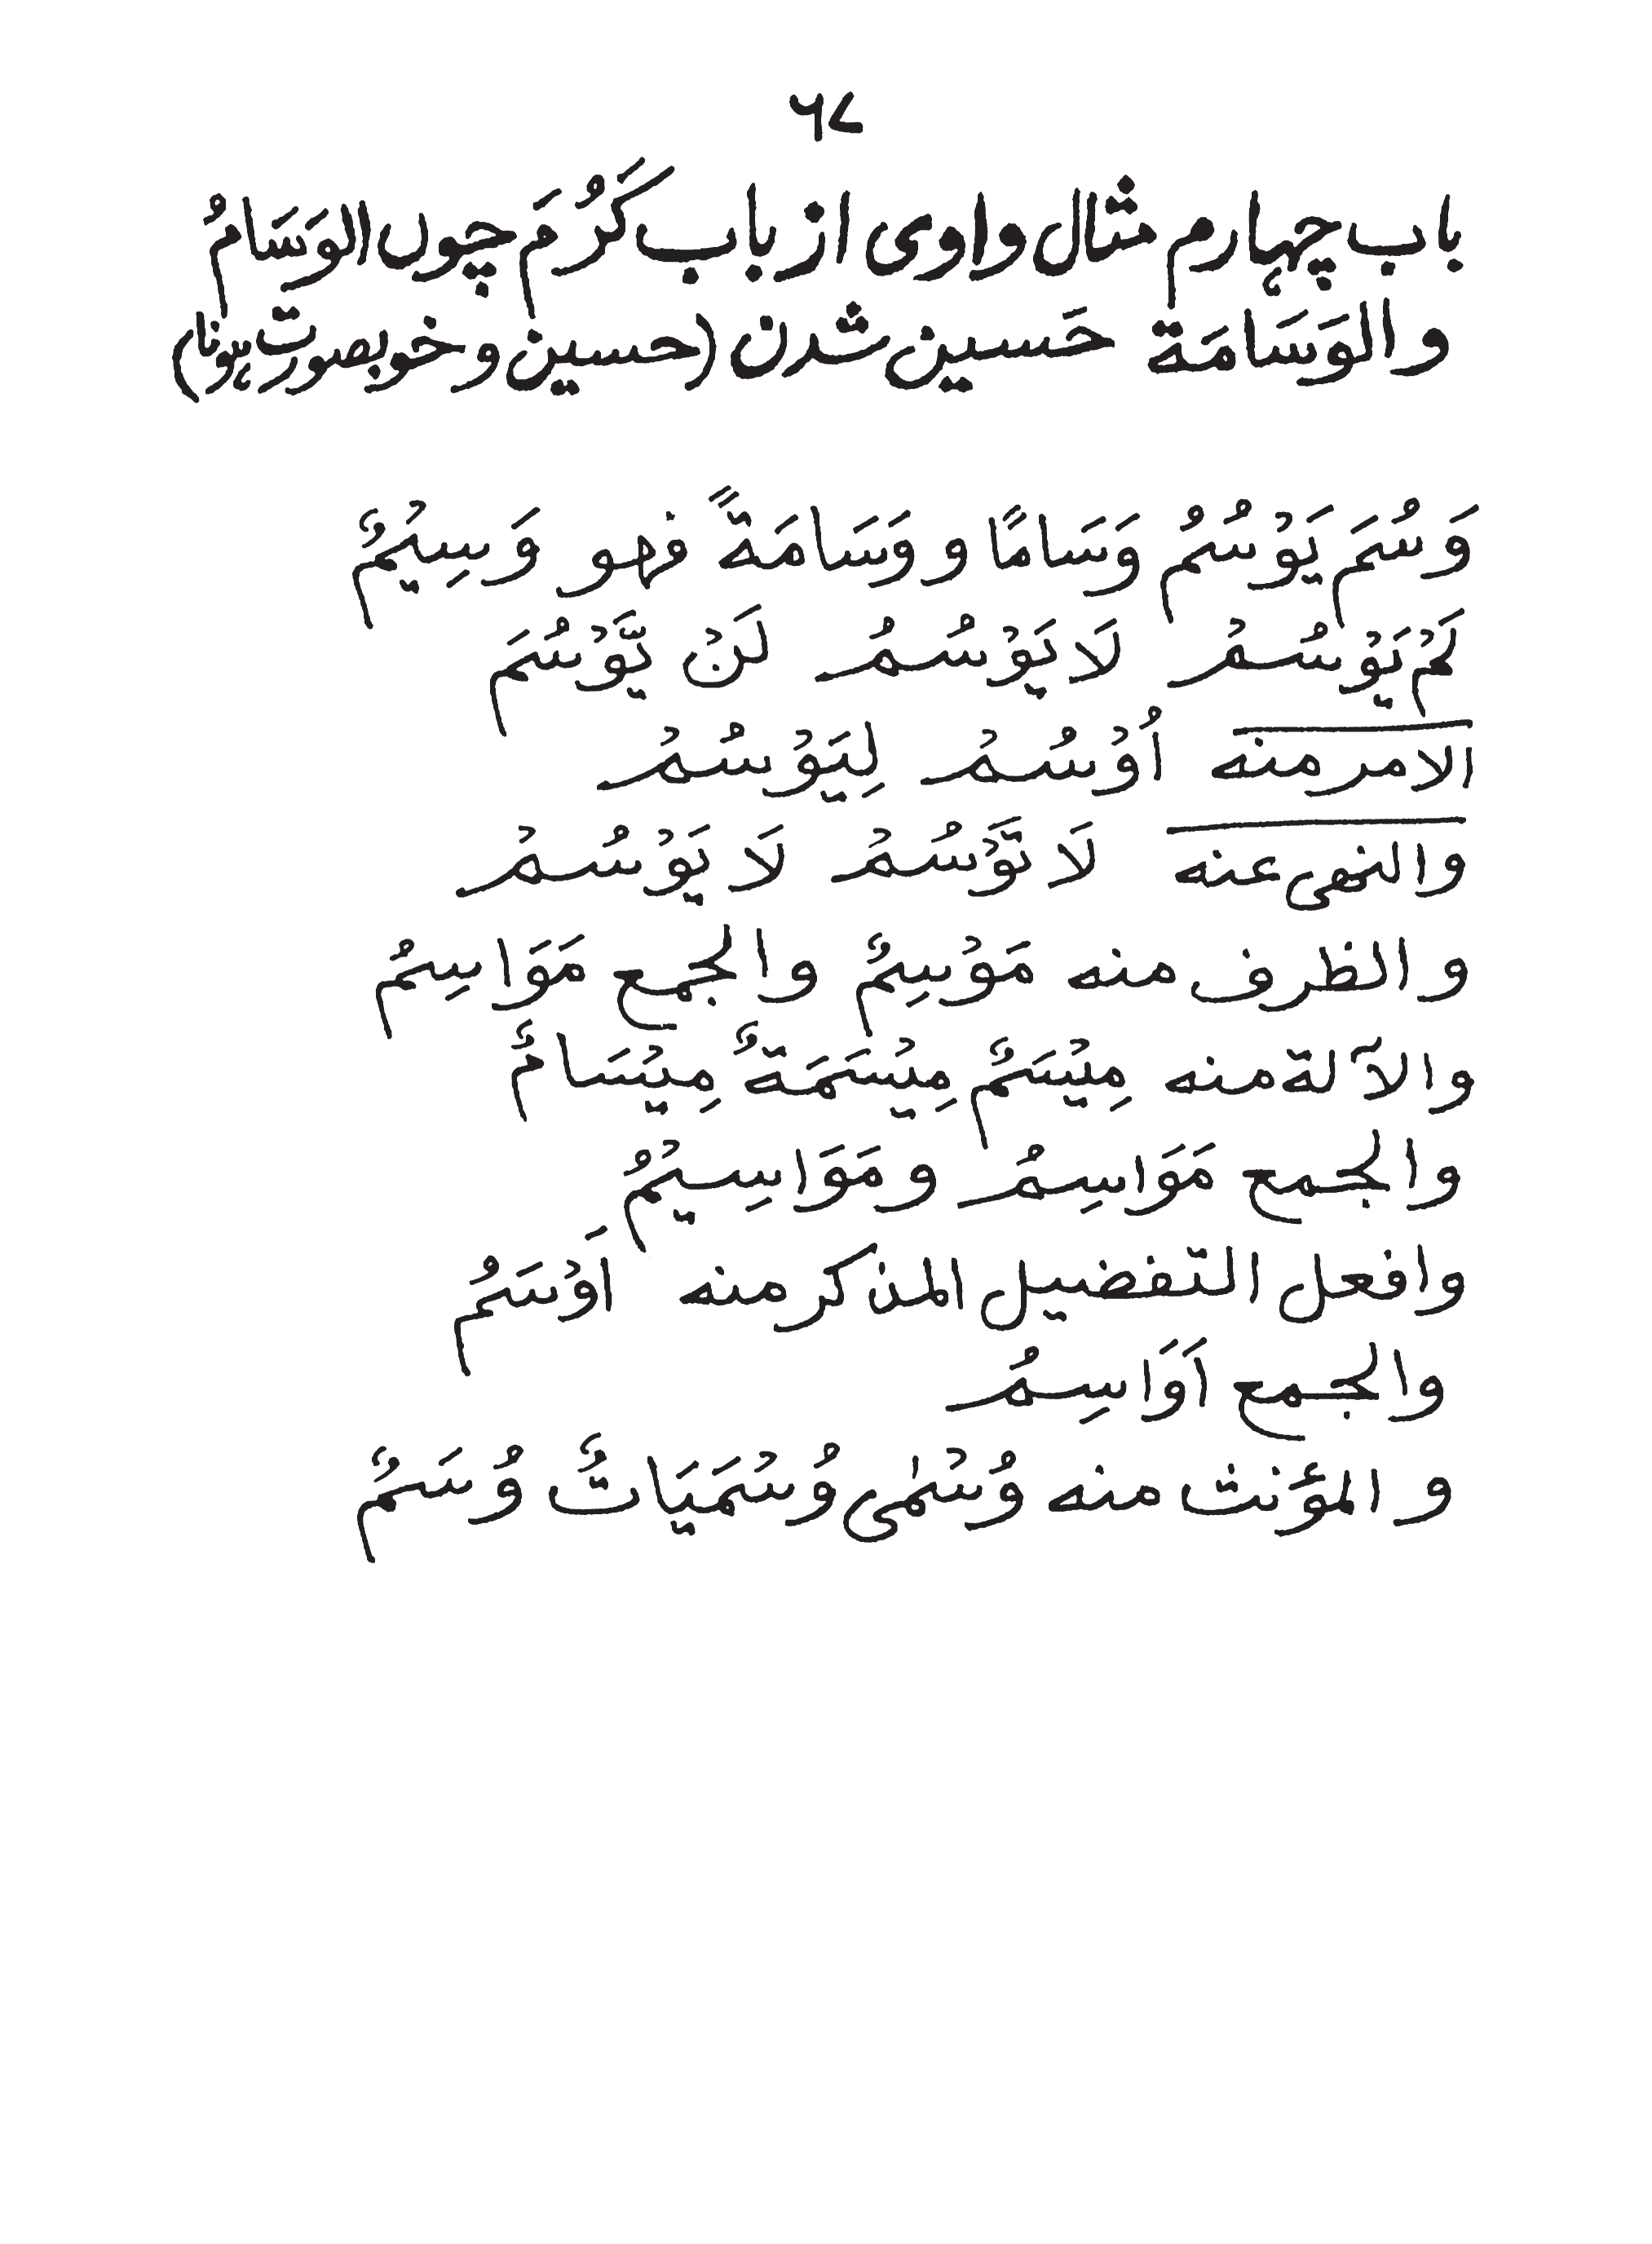 ٦٤
باب چہارم مثال واوی از باب کَرُمَ چوں الوَسَامُ
والوَسَامَة حَسین شدن (حسین و خوبصورت ہونا)
وَسُمَ يَوْسُمُ وَسَامًا و وَسَامَةً فهو وَسِيْمٌ
لَمْ يَوْسُمْ لَا يَوْسُمُ لَنْ يَّوْسُمَ
الامر منه اُوْسُمْ لِيَوْسُمْ
والنهى عنه لَا تَوْسُمْ لَا يَوْسُمْ
و الظرف منه مَوْسِمٌ والجمع مَوَاسِمُ
والآلة منه مِيْسَمٌ مِيْسَمَةٌ مِيْسَامٌ
والجمع مَوَاسِمُ و مَوَاسِيْمُ
وافعل التّفضيل المذكر منه اَوْسَمُ
والجمع اَوَاسِمُ
و المؤنث منه وُسْمٰى وُسْمَيَاتٌ وُسَمٌ